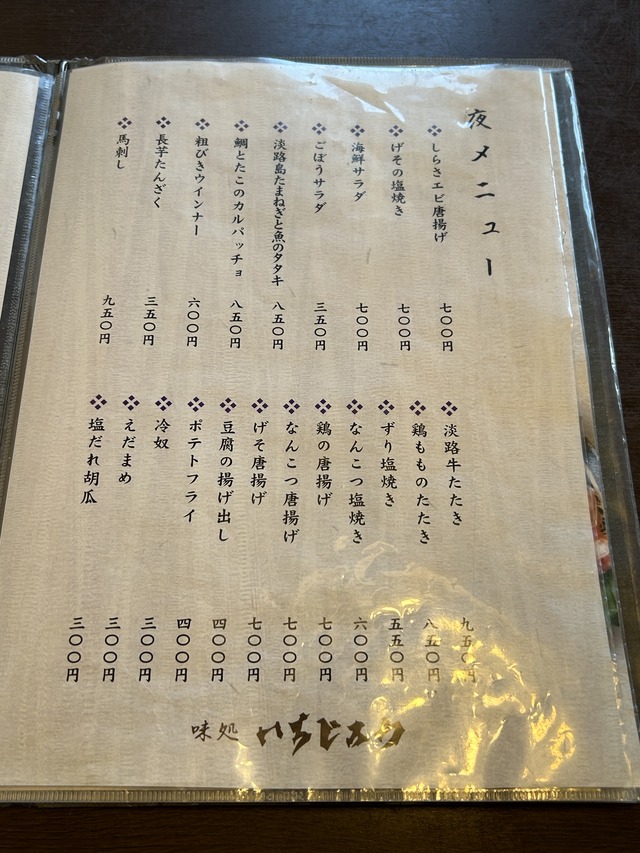 夜メニュー
❖しらさエビ唐揚げ 七〇〇円
❖げその塩焼き 七〇〇円
❖海鮮サラダ 七〇〇円
❖ごぼうサラダ 三五〇円
❖淡路島たまねぎと魚のタタキ 八五〇円
❖鯛とたこのカルパッチョ 八五〇円
❖粗びきウインナー 六〇〇円
❖長芋たんざく 三五〇円
❖馬刺し 九五〇円
❖淡路牛たたき 九五〇円
❖鶏もものたたき 八五〇円
❖ずり塩焼き 五五〇円
❖なんこつ塩焼き 六〇〇円
❖鶏の唐揚げ 七〇〇円
❖なんこつ唐揚げ 七〇〇円
❖げそ唐揚げ 七〇〇円
❖豆腐の揚げ出し 四〇〇円
❖ポテトフライ 四〇〇円
❖冷奴 三〇〇円
❖えだまめ 三〇〇円
❖塩だれ胡瓜 三〇〇円
味処